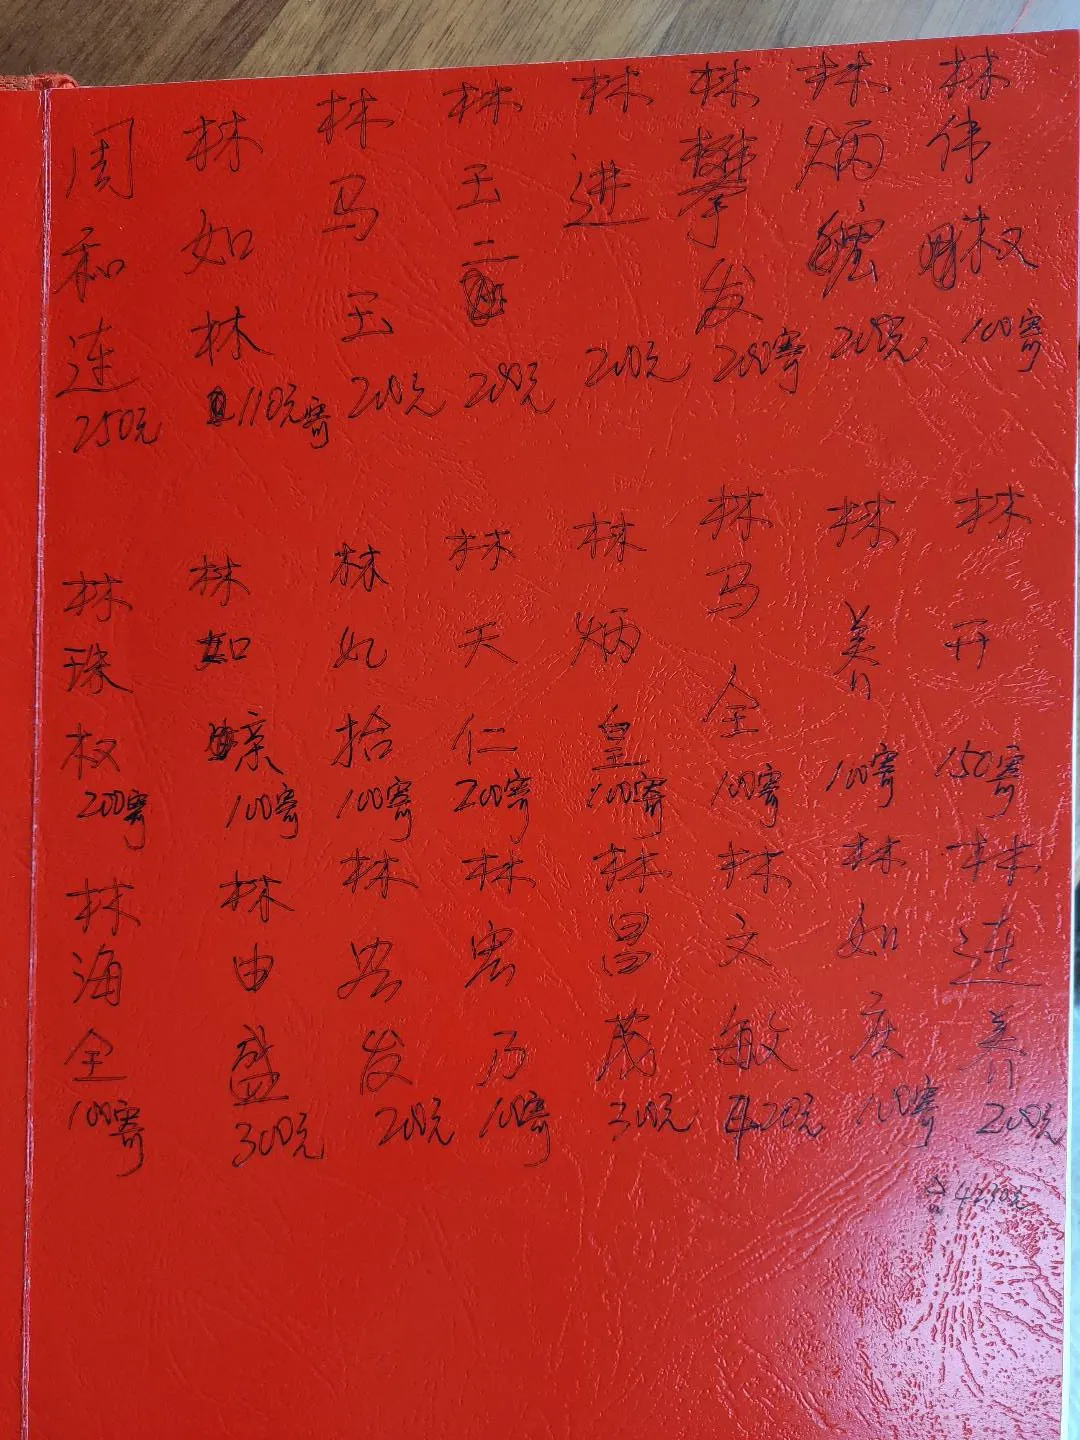 周和连 250元
林如林 110元寄
林马玉 200元
林玉二 200元
林进 200元
林攀发 200寄
林炳 200元
林伟权 100寄
林珠权 200寄
林如 100寄
林拾 100寄
林天仁 200寄
林炳皇 100寄
林马全 100寄
林养 100寄
林开 150寄
林海全 100寄
林由盛 300元
林发 200元
林宏乃 100寄
林昌茂 300元
林文敏 420元
林如庆 100寄
林连养 200元